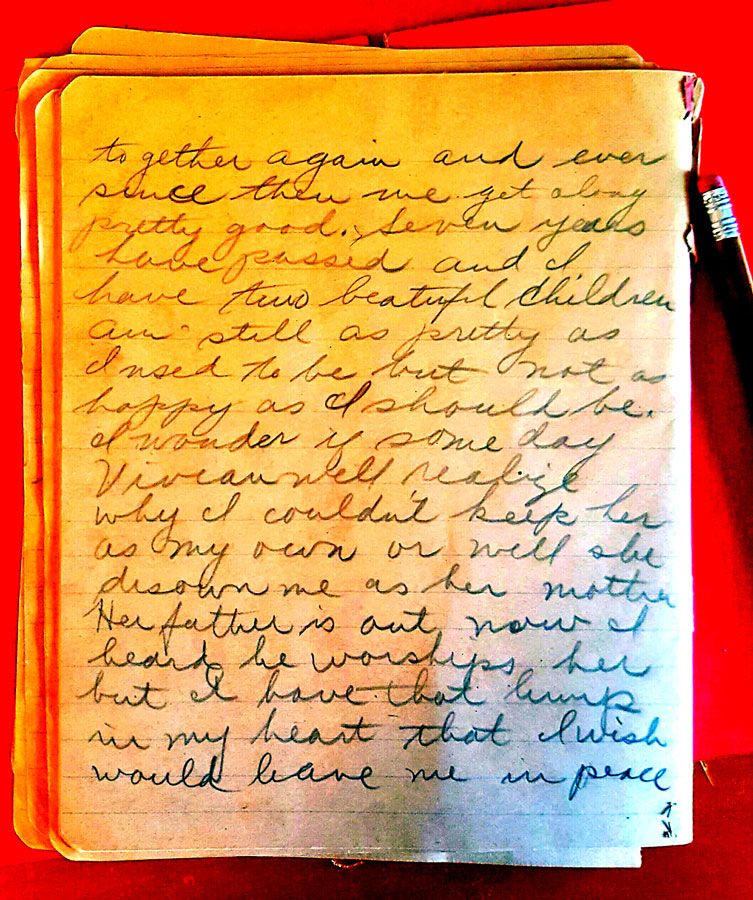 together again and ever
since then we get along
pretty good. Seven years
have passed and I
have two beatuful children
am still as pretty as
I used to be but not as
happy as I should be.
I wonder if some day
Vivean well realize
why I couldn't keep her
as my own or will she
disown me as her mother
Her father is out now I
heard he worships her
but I have that lump
in my heart that I wish
would leave me in peace